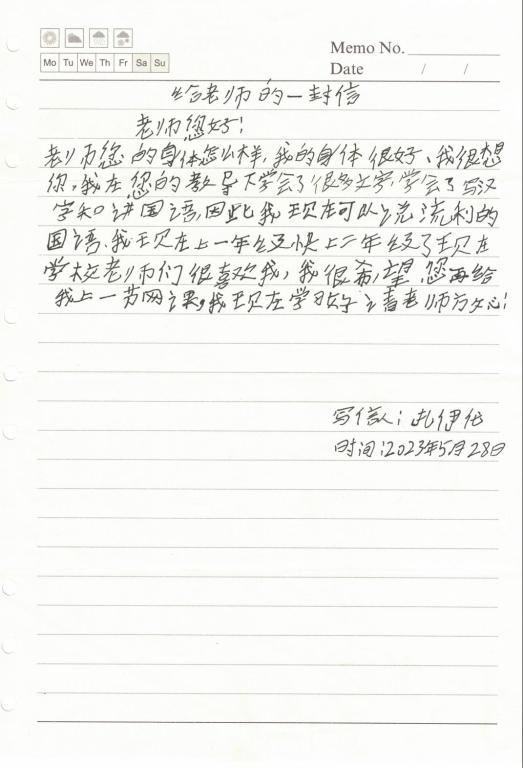 Memo No.
Mo Tu We Th Fr Sa Su
Date / /
给老师的一封信
老师您好!
老师您的身体怎么样,我的身体很好、我很想
你,我在您的教导下学会了很多文字,学会了写汉
字和讲国语,因此我现在可以说流利的
国语、我现在上一年级快上二年级了现在
学校老师们很喜欢我,我很希望您再给
我上一节网课,我现在学习好请老师方心!
写信人:扎伊伦
时间:2023年5月28日